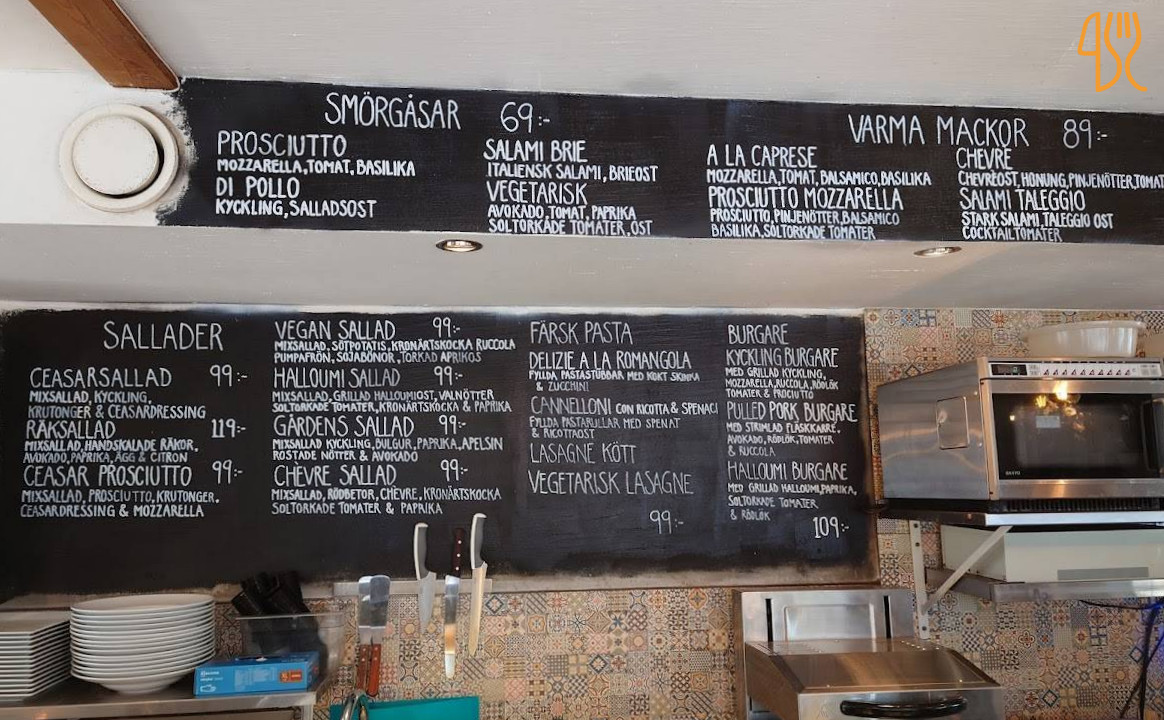 SMÖRGÅSAR 69:-
PROSCIUTTO
MOZZARELLA, TOMAT, BASILIKA
DI POLLO
KYCKLING, SALLADSOST
SALAMI BRIE
ITALIENSK SALAMI, BRIEOST
VEGETARISK
AVOKADO, TOMAT, PAPRIKA
SOLTORKADE TOMATER, OST
VARMA MACKOR 89:-
A LA CAPRESE
MOZZARELLA, TOMAT, BALSAMICO, BASILIKA
PROSCIUTTO MOZZARELLA
PROSCIUTTO, PINJENÖTTER, BALSAMICO
BASILIKA, SOLTORKADE TOMATER
CHEVRE
CHEVREOST, HONUNG, PINJENÖTTER, TOMAT
SALAMI TALEGGIO
STARK SALAMI, TALEGGIO OST
COCKTAILTOMATER
SALLADER
CEASARSALLAD 99:-
MIXSALLAD, KYCKLING,
KRUTONGER & CEASARDRESSING
RÄKSALLAD 119:-
MIXSALLAD, HANDSKALADE RÄKOR,
AVOKADO, PAPRIKA, ÄGG & CITRON
CEASAR PROSCIUTTO 99:-
MIXSALLAD, PROSCIUTTO, KRUTONGER,
CEASARDRESSING & MOZZARELLA
VEGAN SALLAD 99:-
MIXSALLAD, SÖTPOTATIS, KRONÄRTSKOCKA RUCCOLA
PUMPAFRÖN, SOJABÖNOR, TORKAD APRIKOS
HALLOUMI SALLAD 99:-
MIXSALLAD, GRILLAD HALLOUMIOST, VALNÖTTER
SOLTORKADE TOMATER, KRONÄRTSKOCKA & PAPRIKA
GÅRDENS SALLAD 99:-
MIXSALLAD KYCKLING, BULGUR, PAPRIKA, APELSIN
ROSTADE NÖTTER & AVOKADO
CHÈVRE SALLAD 99:-
MIXSALLAD, RÖDBETOR, CHÈVRE, KRONÄRTSKOCKA
SOLTORKADE TOMATER & PAPRIKA
FÄRSK PASTA
DELIZIE A LA ROMANGOLA
FYLLDA PASTASTUBBAR MED KOKT SKINKA
& ZUCCHINI
CANNELLONI CON RICOTTA & SPENACI
FYLLDA PASTARULLAR MED SPENAT
& RICOTTAOST
LASAGNE KÖTT
VEGETARISK LASAGNE
99:-
BURGARE
KYCKLING BURGARE
MED GRILLAD KYCKLING,
MOZZARELLA, RUCCOLA, RÖDLÖK
TOMATER & PROCIUTTO
PULLED PORK BURGARE
MED STRIMLAD FLÄSKKARRE,
AVOKADO, RÖDLÖK, TOMATER
& RUCCOLA
HALLOUMI BURGARE
MED GRILLAD HALLOUMI, PAPRIKA,
SOLTORKADE TOMATER
& RÖDLÖK
109:-
SANYO